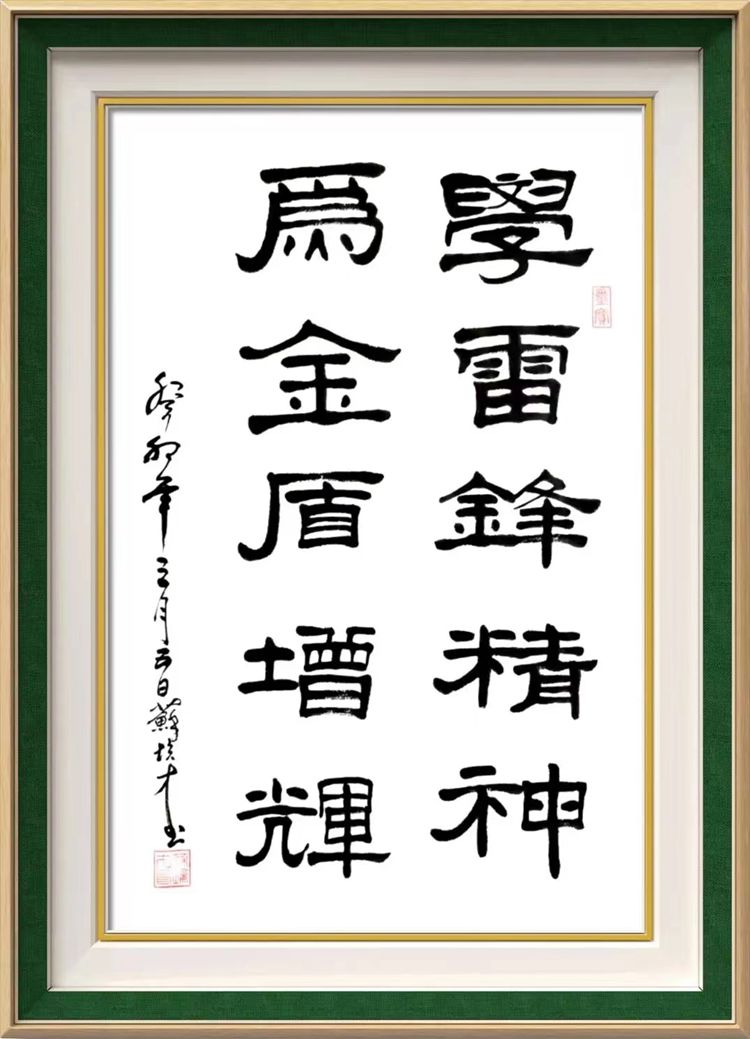 學雷鋒精神
為金盾增輝
癸卯年三月五日蘇培才书